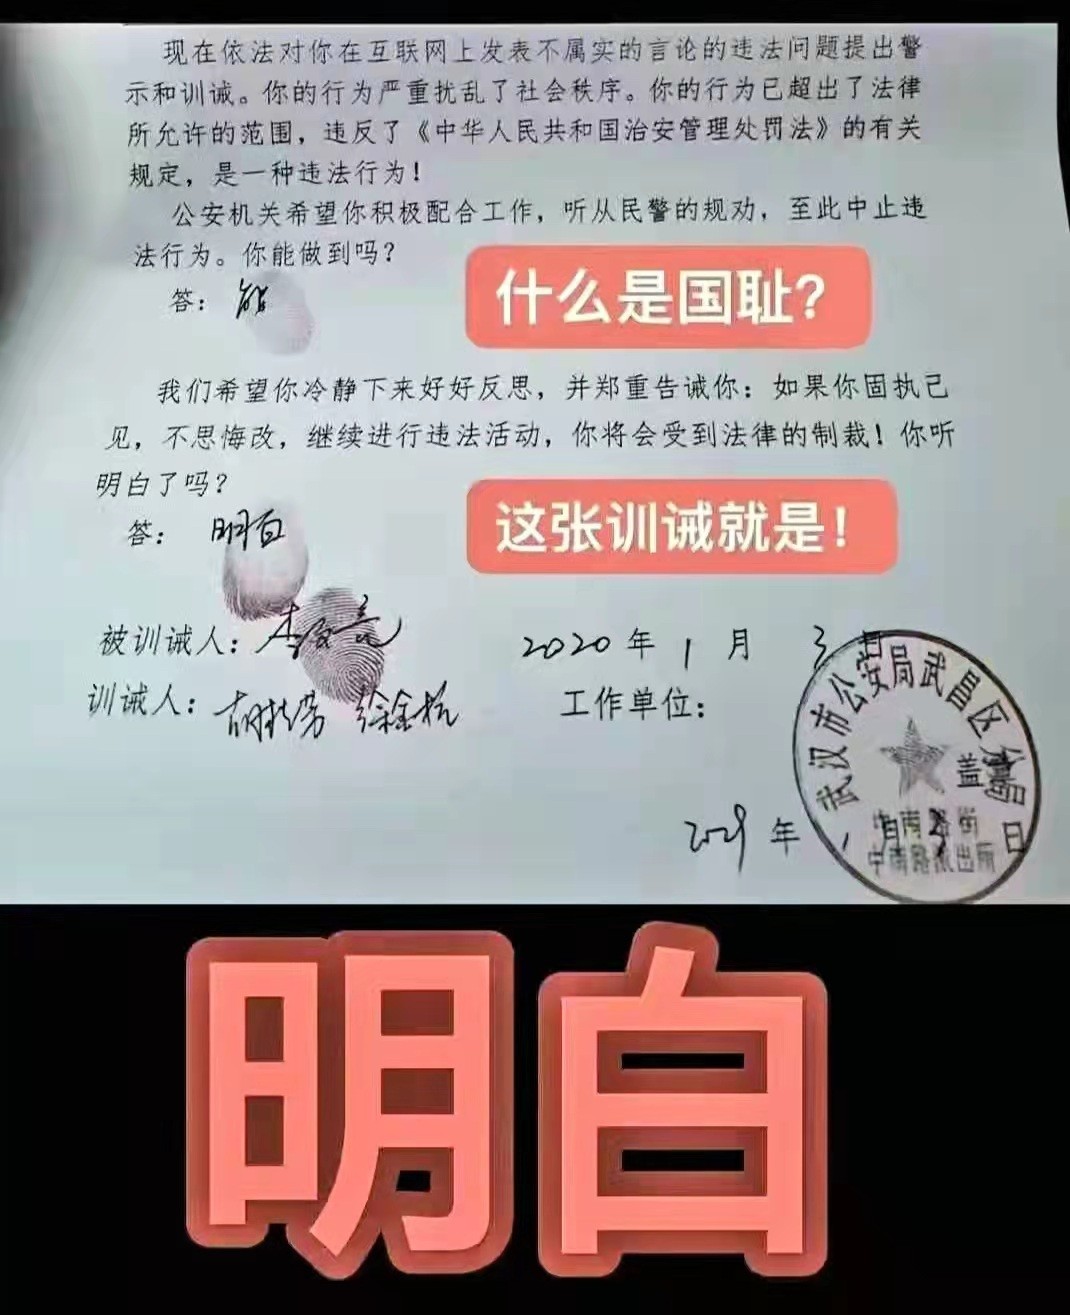 现在依法对你在互联网上发表不属实的言论的违法问题提出警
示和训诫。你的行为严重扰乱了社会秩序。你的行为已超出了法律
所允许的范围，违反了《中华人民共和国治安管理处罚法》的有关
规定，是一种违法行为！
公安机关希望你积极配合工作，听从民警的规劝，至此中止违
法行为。你能做到吗？
答：能
什么是国耻？
我们希望你冷静下来好好反思，并郑重告诫你：如果你固执己
见，不思悔改，继续进行违法活动，你将会受到法律的制裁！你听
明白了吗？
答：明白
这张训诫就是！
被训诫人：李文亮
2020年1月3日
训诫人：胡桂芳 徐金杭
工作单位：
武汉市公安局武昌区分局
盖
中南路街
中南路派出所
年 月 日
明白